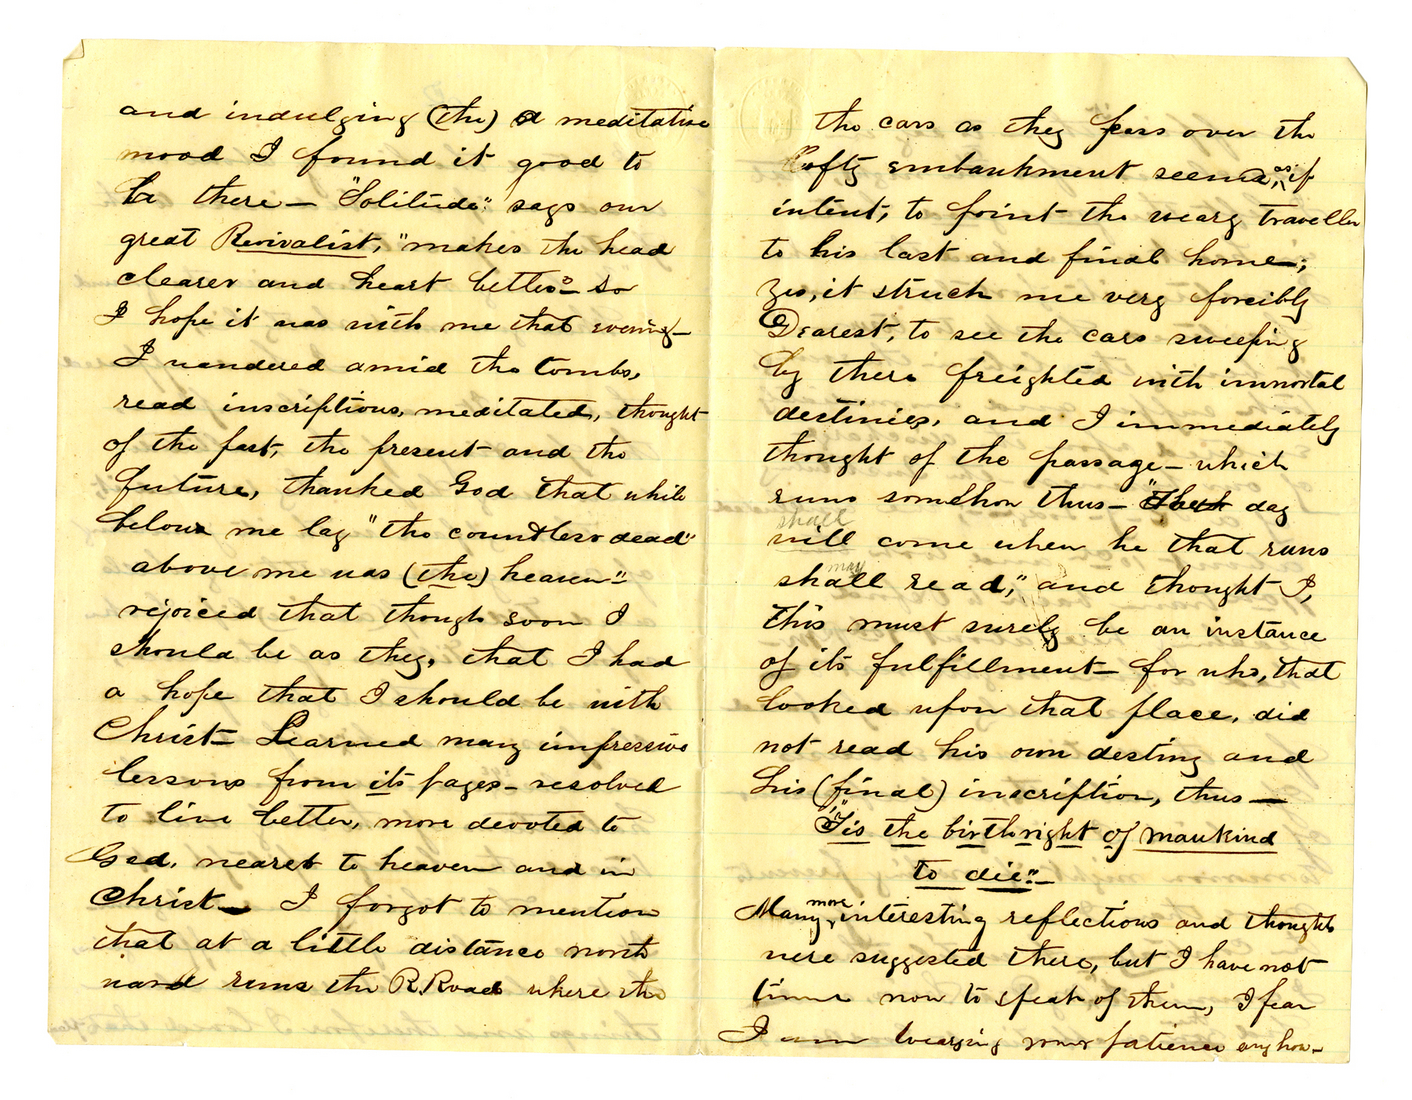 and indulging (the) a meditative
mood I found it good to
be there — "Solitude" says our
great Revivalist, "makes the head
clearer and heart better" — So
I hope it was with me that evening —
I wandered amid the tombs,
read inscriptions, meditated, thought
of the past, the present and the
future, thanked God that while
below me lay "the countless dead"
above me was (the) heaven" —
rejoiced that though soon I
should be as they, that I had
a hope that I should be with
Christ — Learned many impressive
lessons from its pages — resolved
to live better, more devoted to
God, nearer to heaven and in
Christ — I forgot to mention
that at a little distance north
ward runs the R.Road where the
the cars as they pass over the
lofty embankment seemed, as if
intent, to point the weary traveller
to his last and final home;
Yes, it struck me very forcibly
Dearest, to see the cars sweeping
by there freighted with immortal
destinies, and I immediately
thought of the passage — which
runs somehow thus — "The day
shall
will come when he that runs
may
shall read," and thought I,
this must surely be an instance
of its fulfillment — for who, that
looked upon that place, did
not read his own destiny and
his (final) inscription, thus —
"'Tis the birthright of mankind
to die" —
Many more interesting reflections and thoughts
were suggested there, but I have not
time now to speak of them, I fear
I am wearying your patience anyhow —